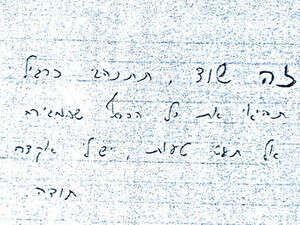 זה שוד, תתנהגי כרגיל
תביאי את כל הכסף שבמגירה
אל תעשי טעות, יש לי אקדח
תודה.